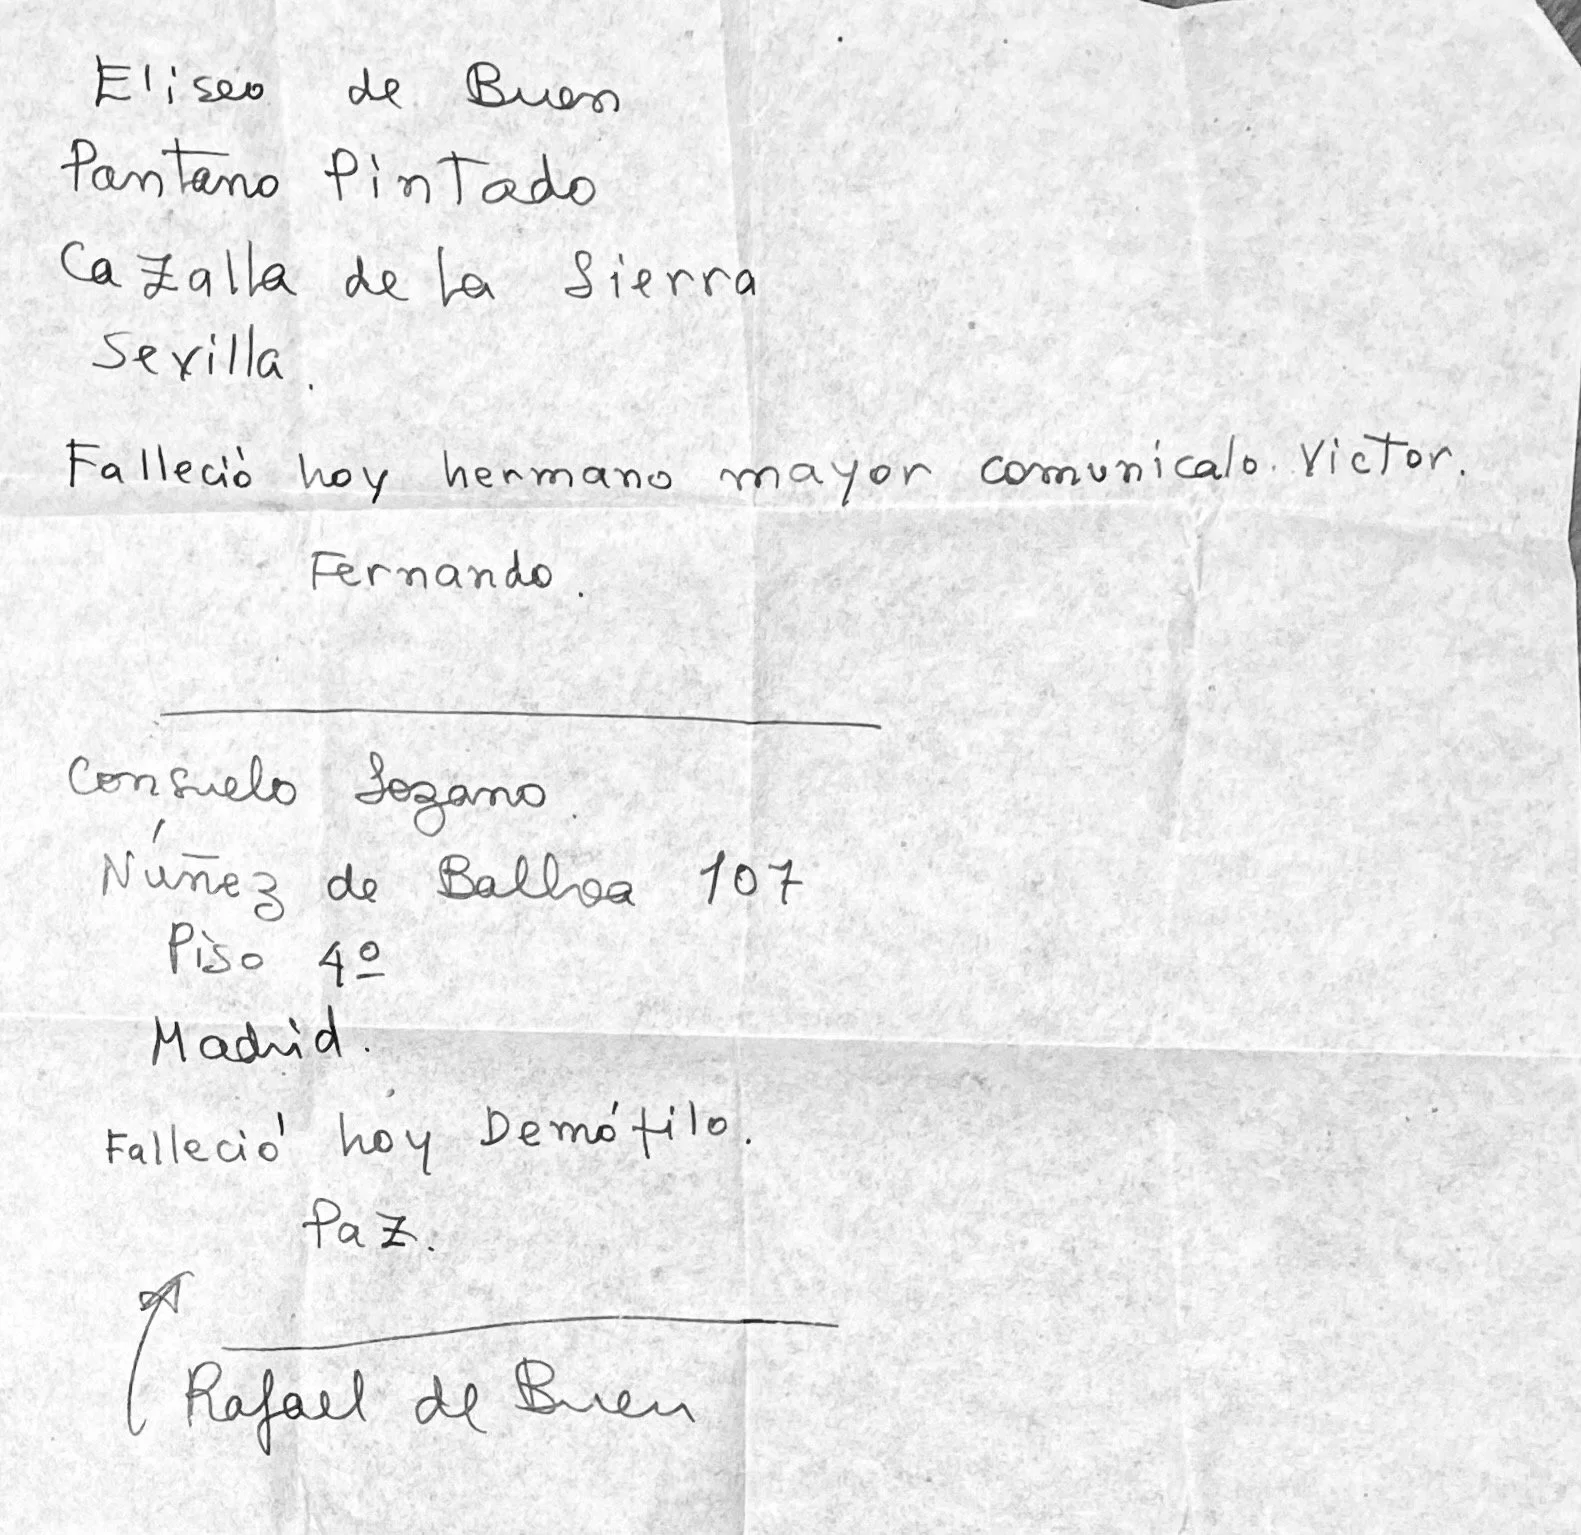 Eliseo de Buen
Pantano Pintado
Cazalla de la Sierra
Sevilla.
Falleció hoy hermano mayor comunícalo. Victor.
Fernando.
Consuelo Lozano.
Núñez de Balboa 107
Piso 4º
Madrid.
Falleció hoy Demófilo.
Paz.
Rafael de Buen